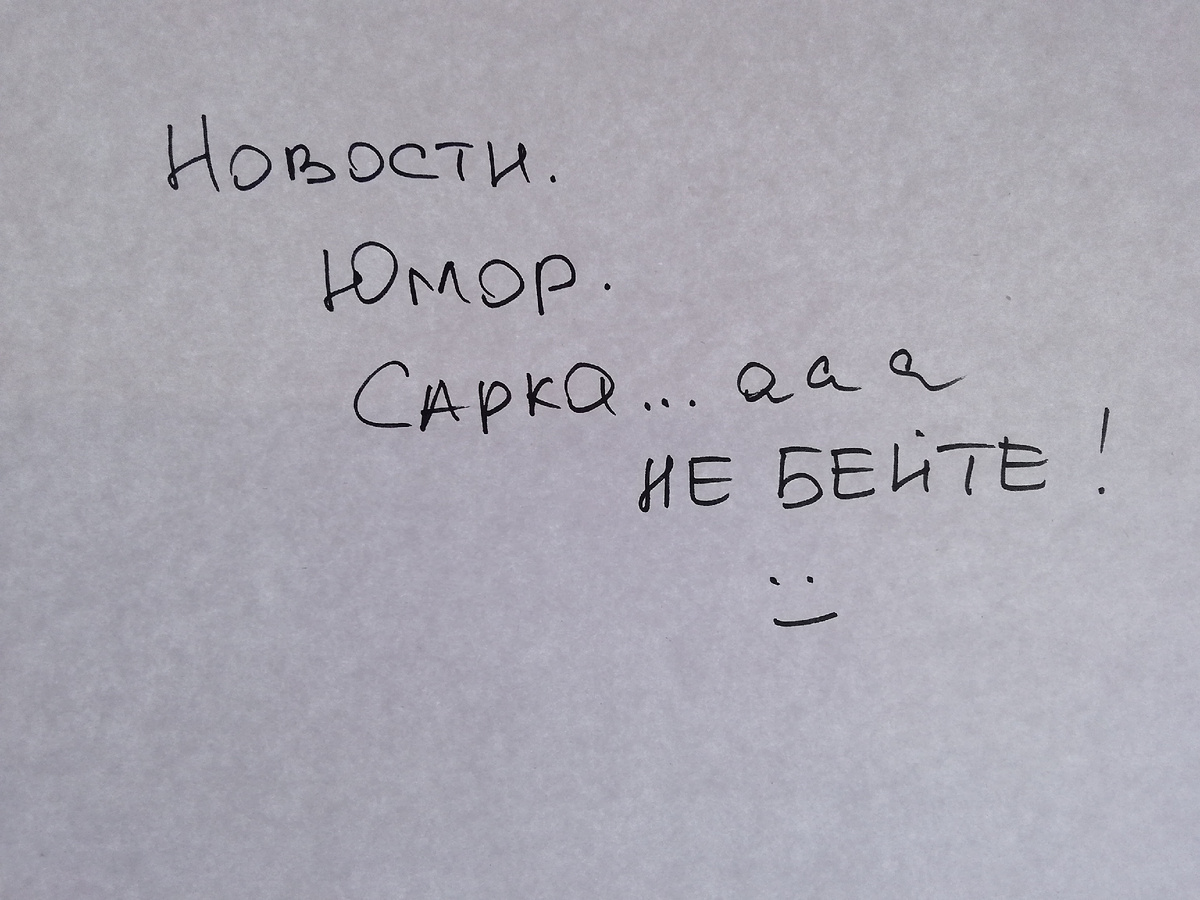 Новости.
Юмор.
Сарка... а а а
НЕ БЕЙТЕ!